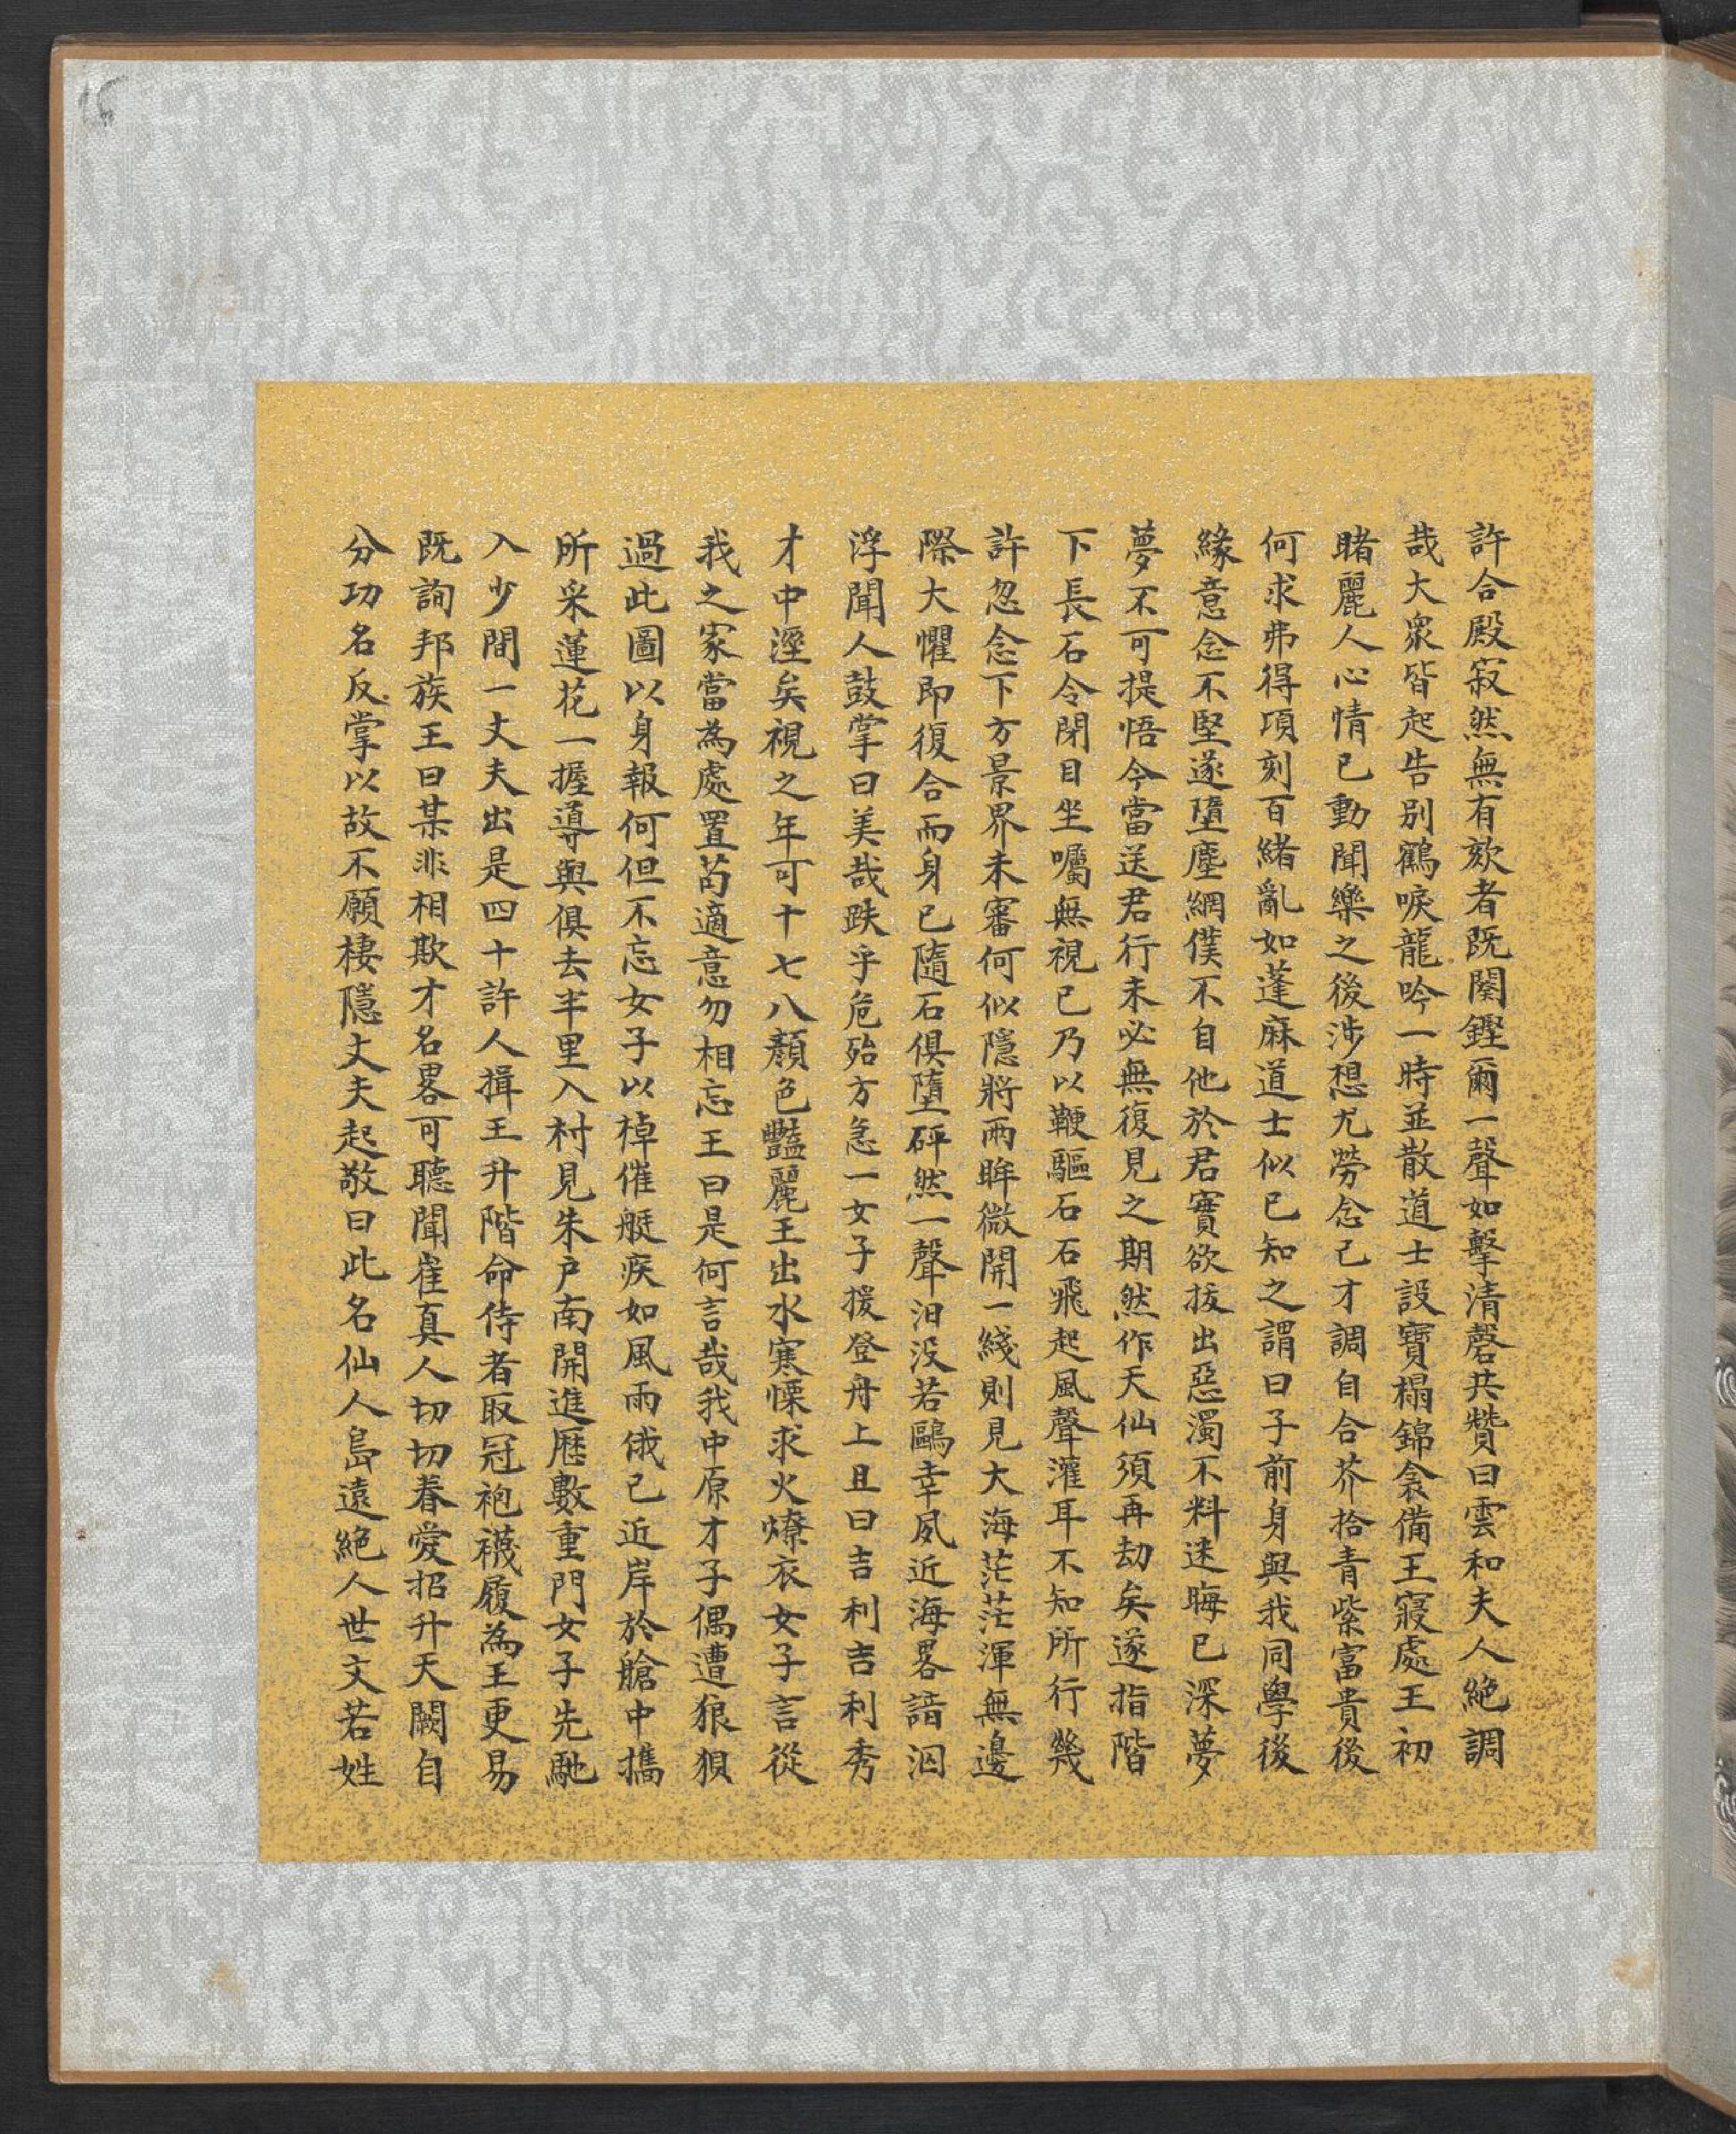 許合殿寂然無有欬者既闋鏗爾一聲如擊清磬共贊曰雲和夫人絶調
哉大衆皆起告別鶴唳龍吟一時並散道士設寶榻錦衾備王寢處王初
睹麗人心情已動聞樂之後涉想尤勞念己才調自合芥拾青紫富貴後
何求弗得項刻百緒亂如蓬麻道士似已知之謂曰子前身與我同學後
緣意念不堅遂墮塵網僕不自他於君實欲拔出惡濁不料迷晦已深夢
夢不可提悟今當送君行未必無復見之期然作天仙須再劫矣遂指階
下長石令閉目坐囑無視已乃以鞭驅石石飛起風聲灌耳不知所行幾
許忽念下方景界未審何似隱將兩眸微開一綫則見大海茫茫渾無邊
際大懼即復合而身已隨石俱墮砰然一聲汨没若鷗幸夙近海畧諳泅
浮聞人鼓掌曰美哉跌乎危殆方急一女子援登舟上且曰吉利吉利秀
才中溼矣視之年可十七八顏色豔麗王出水寒慄求火燎衣女子言從
我之家當為處置苟適意勿相忘王曰是何言哉我中原才子偶遭狼狽
過此圖以身報何但不忘女子以棹催艇疾如風雨俄已近岸於艙中攜
所采蓮花一握導與俱去半里入村見朱戶南開進歷數重門女子先馳
入少間一丈夫出是四十許人揖王升階命侍者取冠袍襪履為王更易
既詢邦族王曰某非相欺才名畧可聽聞崔真人切切眷愛招升天闕自
分功名反掌以故不願棲隱丈夫起敬曰此名仙人島遠絶人世文若姓